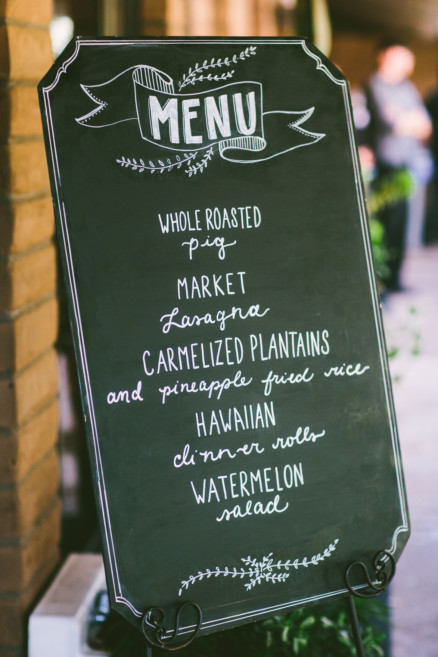 MENU
WHOLE ROASTED
pig
MARKET
Lasagna
CARMELIZED PLANTAINS
and pineapple fried rice
HAWAIIAN
dinner rolls
WATERMELON
salad